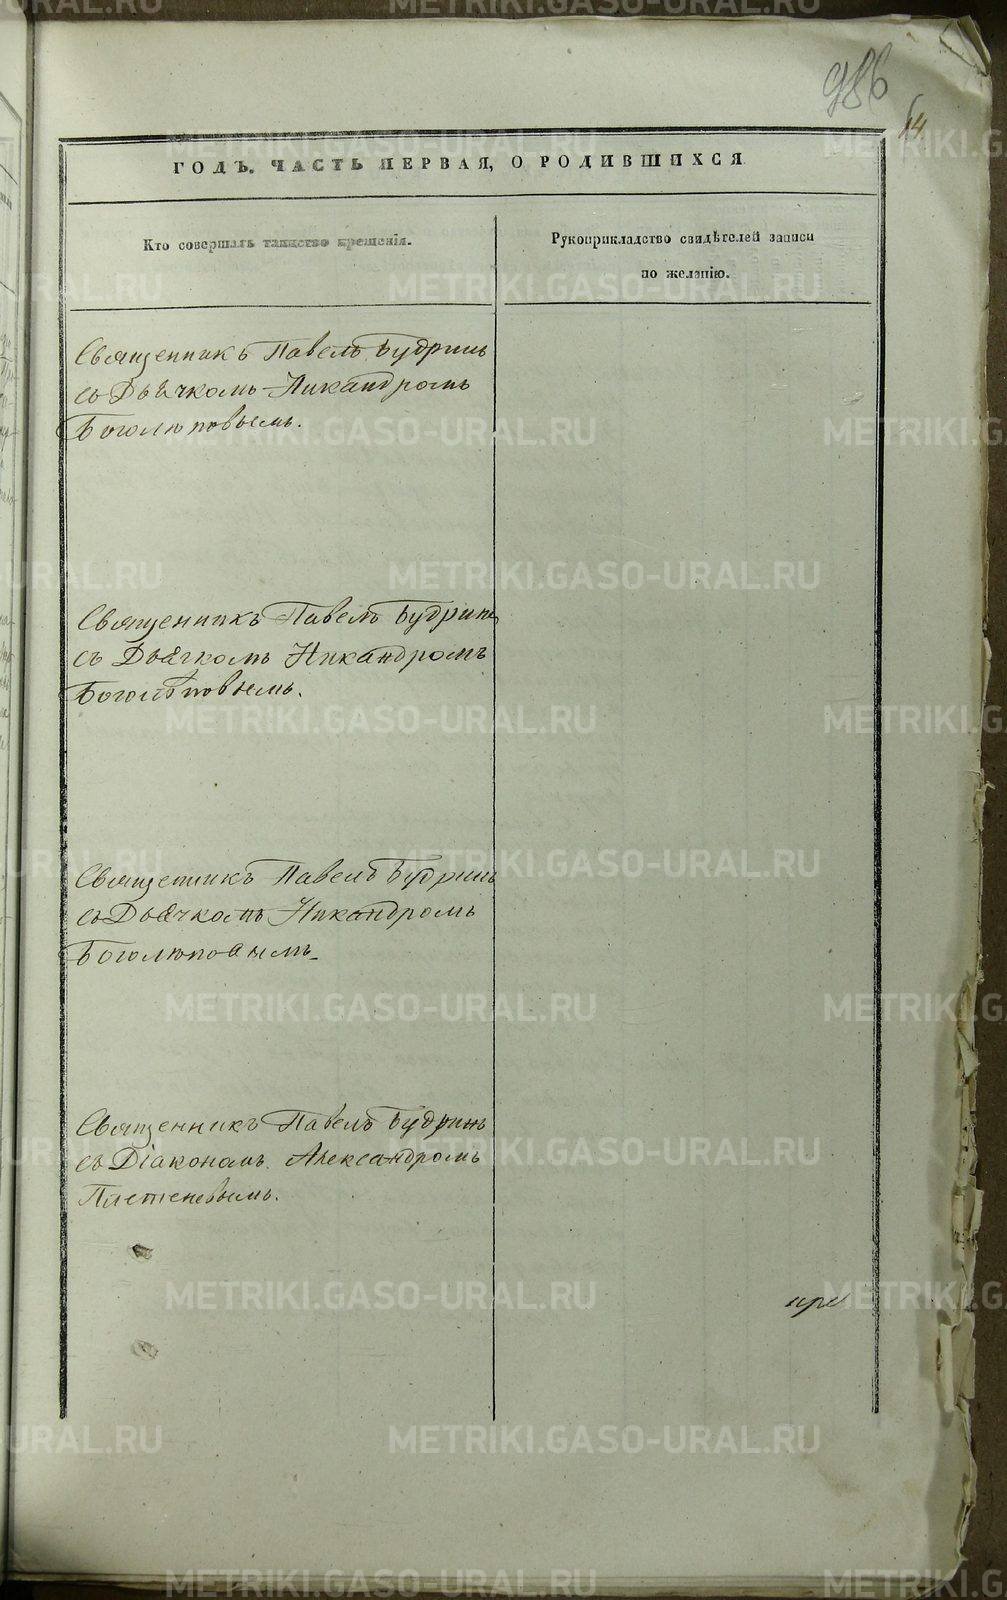 986
14.
ГОДЪ. ЧАСТЬ ПЕРВАЯ, О РОДИВШИХСЯ
Кто совершалъ таинство крещенія.
Рукоприкладство свидѣтелей записи
по желанію.
Священникъ Павелъ Будринъ
съ Дьячкомъ Никандромъ
Боголюповымъ.
Священникъ Павелъ Будринъ
съ Дьячкомъ Никандромъ
Боголюповымъ.
Священникъ Павелъ Будринъ
съ Дьячкомъ Никандромъ
Боголюповымъ.
Священникъ Павелъ Будринъ
съ Діакономъ Александромъ
Плетеневымъ.
METRIKI.GASO-URAL.RU